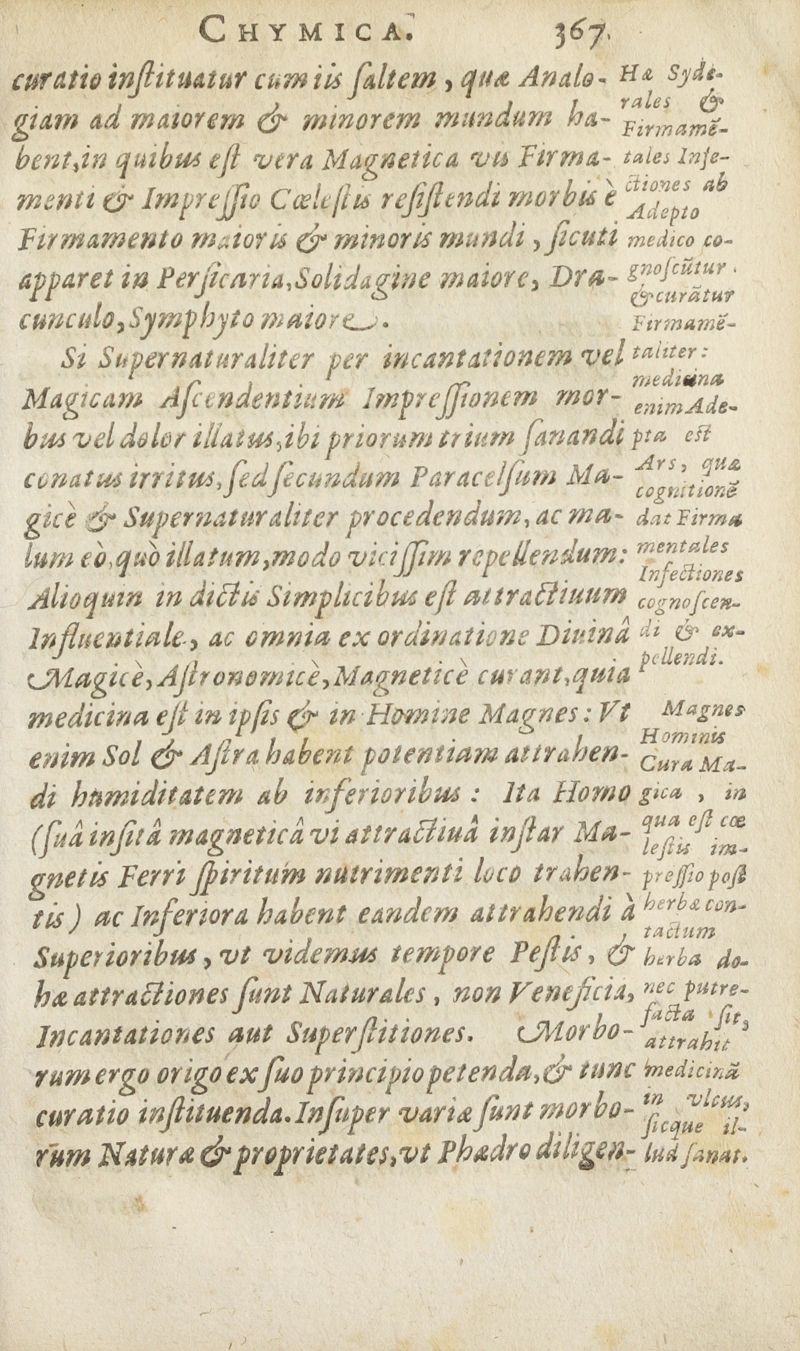 CHYMICA. 367.
curatio inſtituatur cum iis ſaltem, quæ Analo-
giam ad maiorem & minorem mundum ha-
bent, in quibus eſt vera Magnetica vis Firma-
menti & Impreſſio Cœleſtis reſiſtendi morbis è
Firmamento maioris & minoris mundi, ſicuti
apparet in Perſicaria, Solidagine maiore, Dra-
cunculo, Symphyto maiore.
Si Supernaturaliter per incantationem vel
Magicam Aſcendentium Impreſſionem mor-
bus vel dolor illatus, ibi priorum trium ſanandi
conatus irritus, ſed ſecundum Paracelſum Ma-
gicè & Supernaturaliter procedendum, ac ma-
lum eò, quò illatum, modo viciſſim repellendum:
Alioquin in dictis Simplicibus eſt attractiuum
Influentiale, ac omnia ex ordinatione Diuinâ
Magicè, Aſtronomicè, Magneticè curant, quia
medicina eſt in ipſis & in Homine Magnes: Vt
enim Sol & Aſtra habent potentiam attrahen-
di humiditatem ab inferioribus: Ita Homo
(ſuâ inſitâ magneticâ vi attractiuâ inſtar Ma-
gnetis Ferri ſpiritum nutrimenti loco trahen-
tis) ac Inferiora habent eandem attrahendi à
Superioribus, vt videmus tempore Peſtis, &
hæ attractiones ſunt Naturales, non Veneficia,
Incantationes aut Superſtitiones. Morbo-
rum ergo origo ex ſuo principio petenda, & tunc
curatio inſtituenda. Inſuper variæ ſunt morbo-
rum Naturæ & proprietates, vt Phædro diligen-
Hæ Syde-
rales &
Firmamẽ-
tales Infe-
ctiones ab
Adepto
medico co-
gnoſcũtur.
& curãtur
Firmamẽ-
taliter:
medicina
enim Ade-
pta eſt
Ars, quæ
cognitionẽ
dat Firma
mentales
Infectiones
cognoſcen-
di & ex-
pellendi.
Magnes
Hominis
Cura Ma-
gica, in
qua eſt cœ
leſtis im-
preſſio poſt
herbæ con-
tactum
herba do-
nec putre-
facta ſit,
attrahit
medicinã
in vlcus,
ſicque il-
lud ſanat.